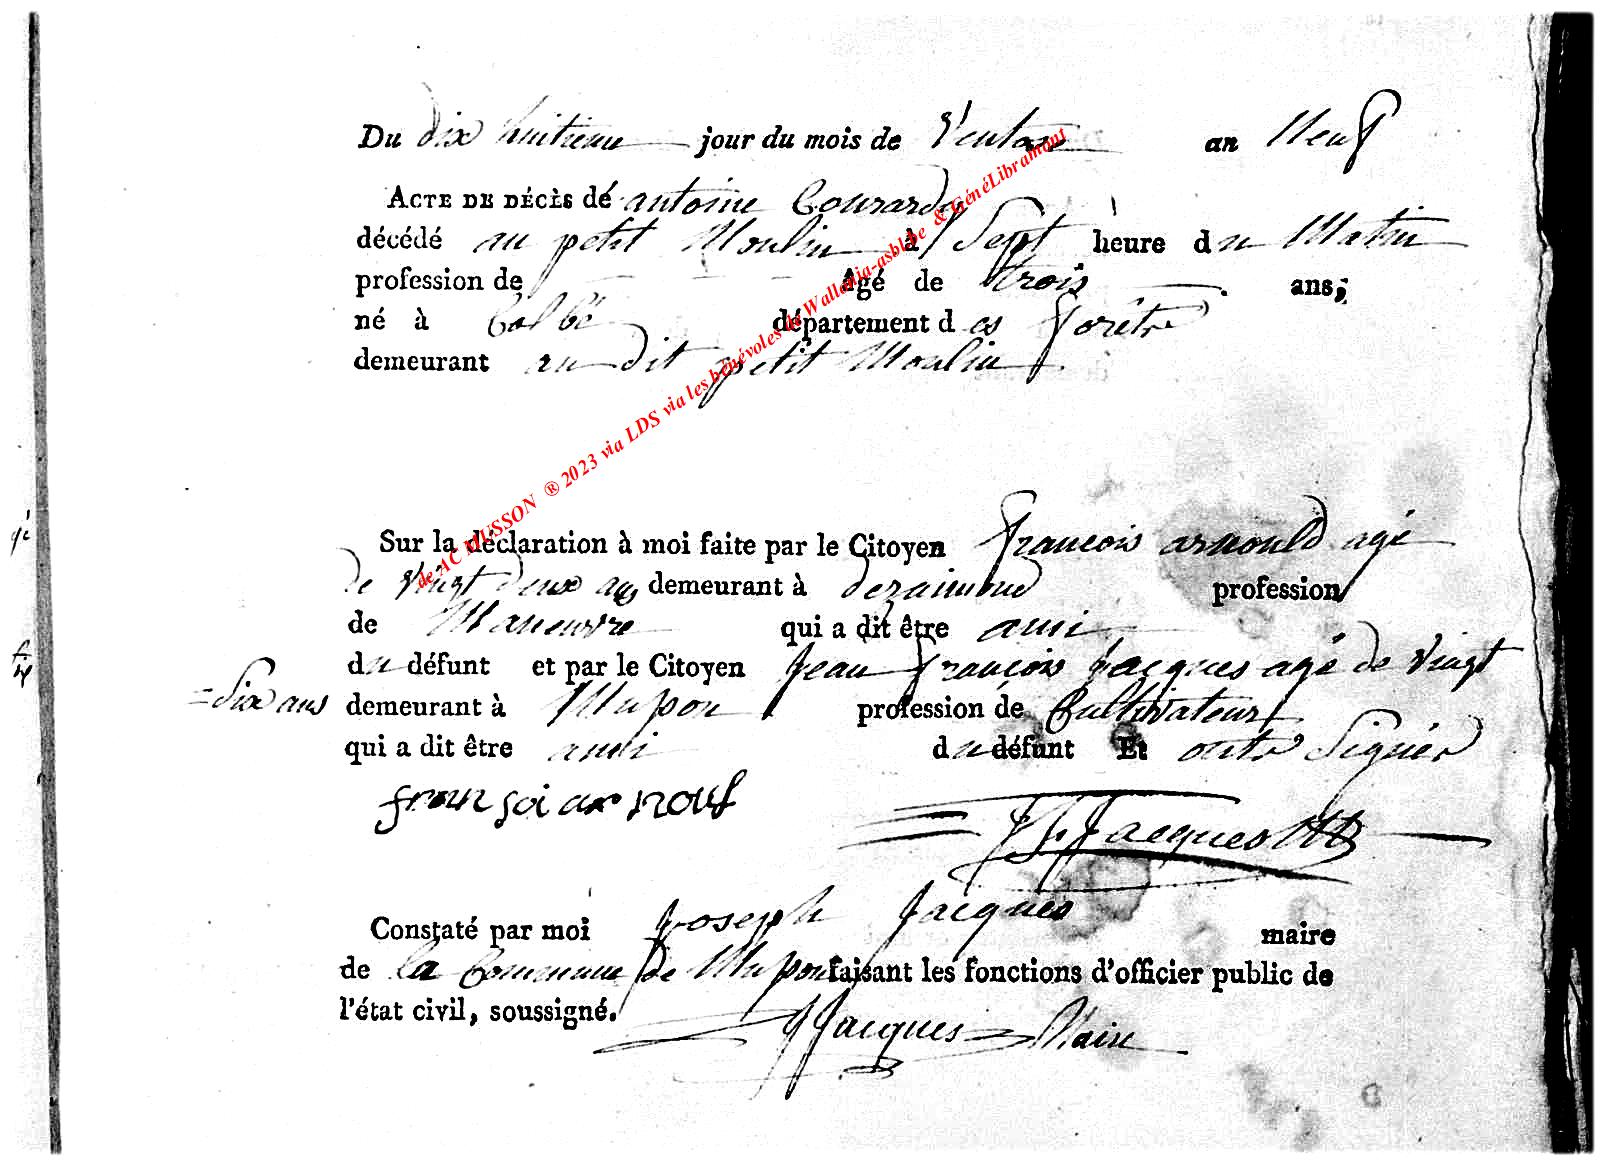 Du dix huitieme jour du mois de Ventose an Neuf
ACTE DE DÉCÈS dé antoine Courard
décédé au petit Moulin à Sept heure du Matin
profession de âgé de trois ans;
né à département des forêts
demeurant au dit petit Moulin
Sur la déclaration à moi faite par le Citoyen francois arnould agé
de vingt deux ans demeurant à profession
de Maneuvre qui a dit être ami
du défunt et par le Citoyen Jean françois Jacques agé de vingt
=Six ans demeurant à profession de Cultivateur
qui a dit être ami du défunt Et onts Signér
fran soi ar nouf
Jacques
Constaté par moi Joseph Jacques maire
de la Commune de faisant les fonctions d'officier public de
l'état civil, soussigné.
JJacques Maire
de AC MUSSON ® 2023 via LDS via les bénévoles de Wallonia-asbl.be & GénéLibramont